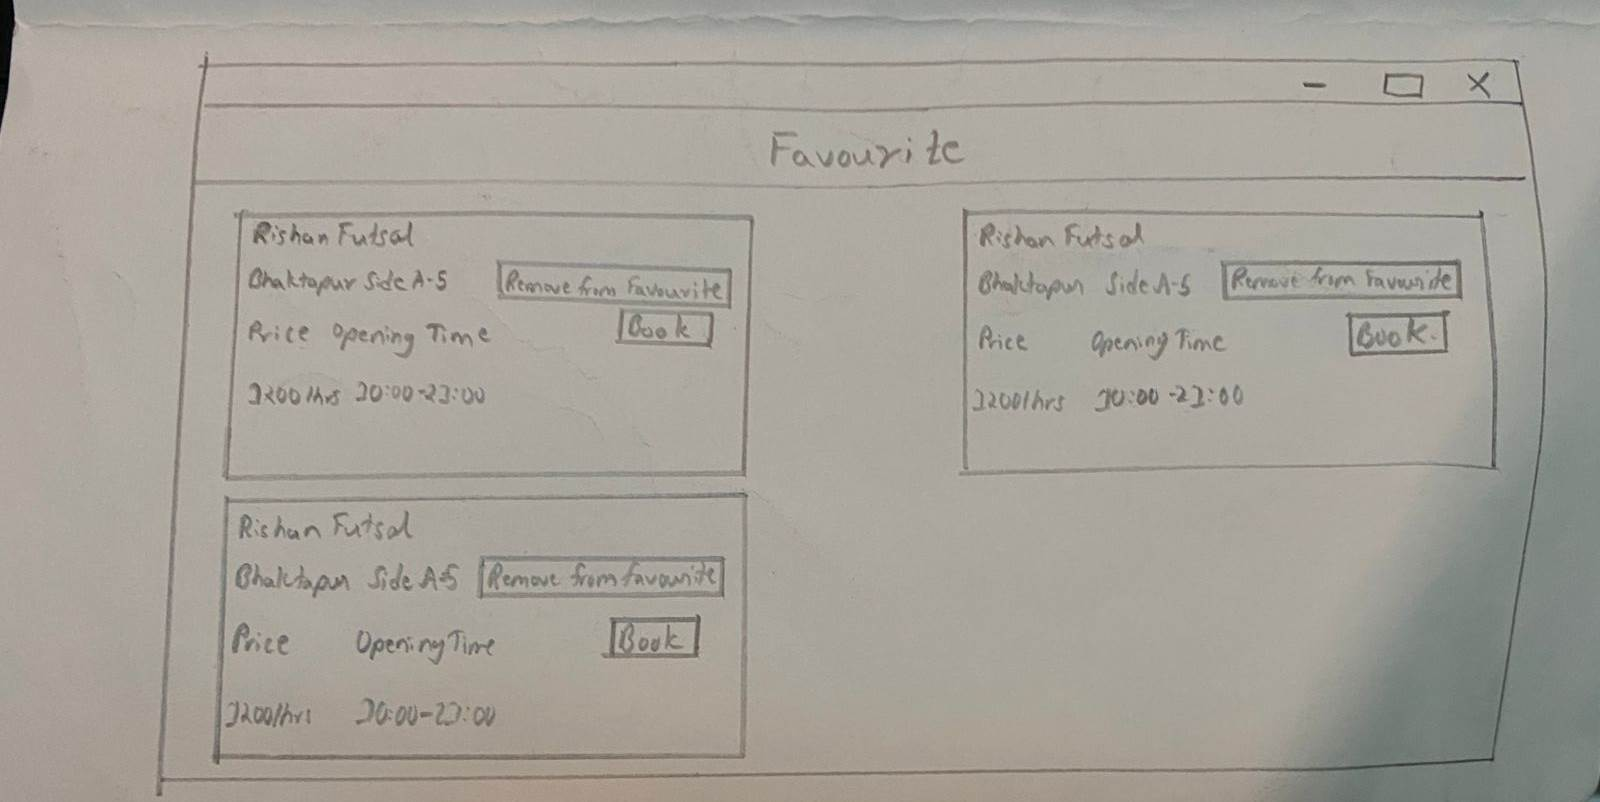 Favourite
Rishan Futsal
Bhaktapur Side A-5 Remove from Favourite
Price Opening Time Book
1200/hrs 10:00-21:00
Rishan Futsal
Bhaktapur Side A-5 Remove from Favourite
Price Opening Time Book.
1200/hrs 10:00-21:00
Rishan Futsal
Bhaktapur Side A-5 Remove from favourite
Price Opening Time Book
1200/hrs 10:00-21:00